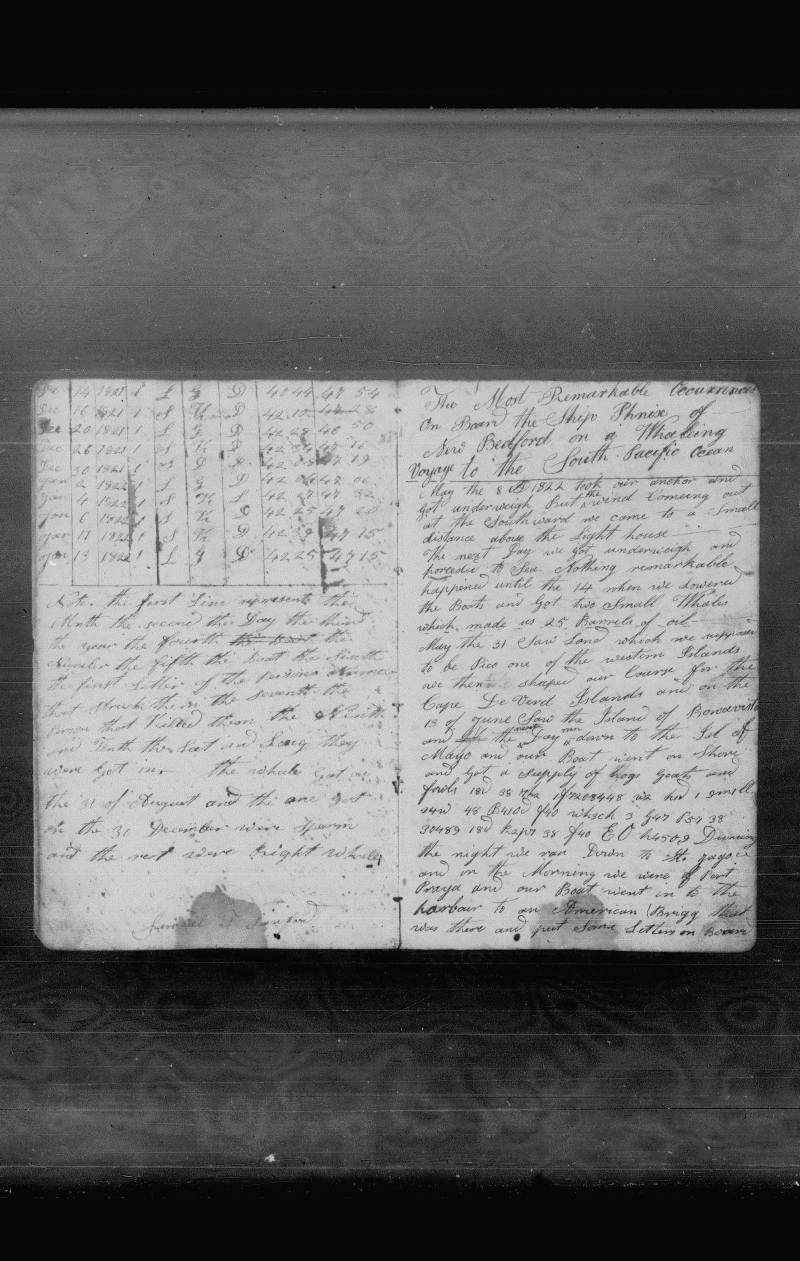 Dec 14 1821 1 L G D 40 44 47 54
Dec 16 1821 1 S K D 42 10 47 28
Dec 20 1821 1 L G D 42 28 46 50
Dec 26 1821 1 S K D 42 47 16
Dec 30 1821 1 S D D 42 47 19
Jan 2 1822 1 L G D 42 47 06
Jan 4 1822 1 S K L 42 47 32
Jan 6 1822 1 S K D 42 25 47 28
Jan 11 1822 1 S K D 42 39 47 15
Jan 13 1822 1 L G D 42 25 47 15
Note the first Line represents the
Month the second the Day the third
the year the fourth the Boat the
Number the fifth the boat the Sixth
the first Letter of the persons
that Struck them the seventh the
person that killed them the Ninth
and Tenth the Lat and Long they
were Got in the whale Got on
the 31 of August and the one got
on the 30 December were Sperm
and the rest were Wright whales
The Most Remarkable Occurrences
On Board the Ship Phnix of
New Bedford on a Whaleing
Voyage to the South Pacific Ocean
May the 8 th 1822 took our anchor and
Got underweigh But the wind Comeing out
at the Southward we came to a Small
distance above the Light house
The next Day we got underweigh and
porcedie to Sea. Nothing remarkable
happined until the 14 when we Lowered
the Boats and Got two Small Whales
which made us 25 Barrels of oil
May the 31 Saw Land which we suppose
to be Pico one of the western Islands
we then shaped our Course for the
Cape De Verd Islands and on the
13 of June Saw the Island of Bonavista
and the next Day ran down to the Isl of
Mayo and our Boat went on Shore
and Got a Supply of hogs Goats and
fouls 18d 38 1 Small
48 B410d f40 wh3ch 3 947 38
30489 18d 38 f40 EO h4509 Dureing
the night we ran Down to St. Jago
and in the Morning we were of Port
Praya and our Boat went in to the
harbour to an American Brigg that
was there and put Some Letters on Board